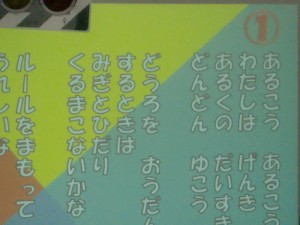 ①
あるこう　あるこう
わたしは　げんき
あるくの　だいすき
どんどん　ゆこう
どうろを　おうだん
するときは
みぎとひだり
くるまこないかな
ルールをまもって
うれしいな